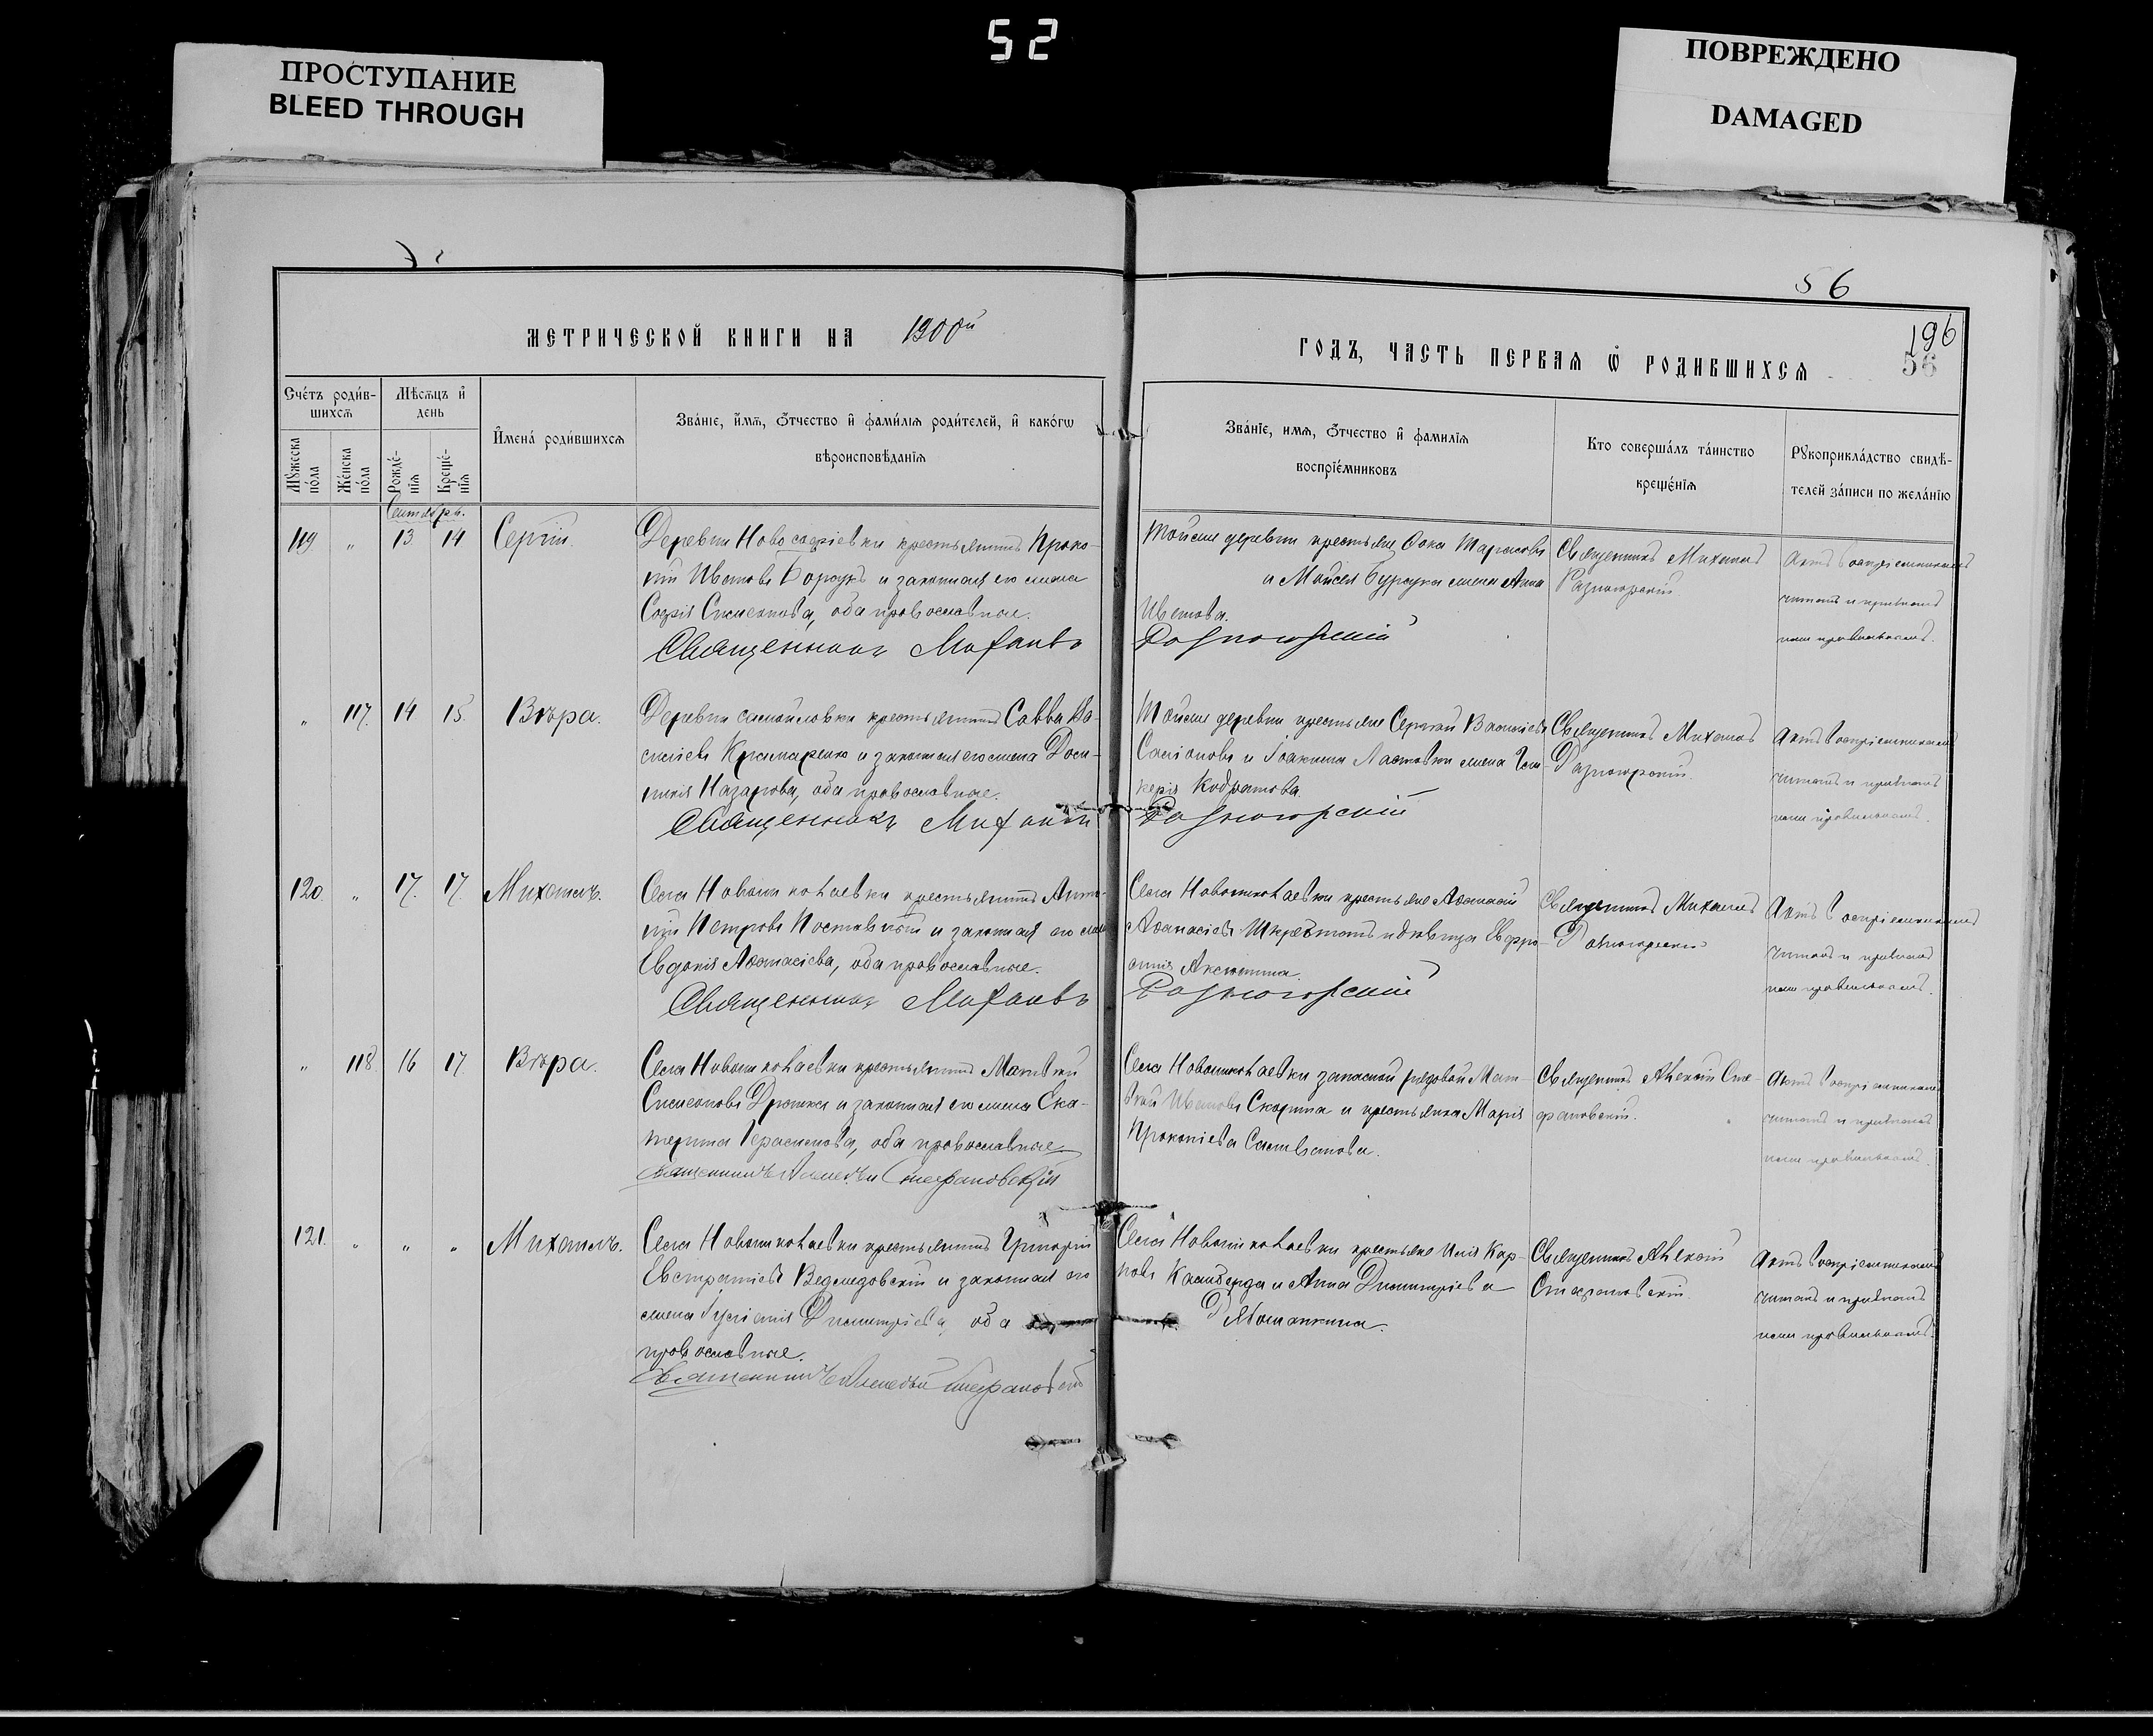 52
ПРОСТУПАНИЕ
BLEED THROUGH
ПОВРЕЖДЕНО
DAMAGED
56
196
56
МЕТРИЧЕСКОЙ КНИГИ НА 1900й
ГОДЪ, ЧАСТЬ ПЕРВАЯ Ѡ РОДИВШИХСЯ
Счéтъ роди́в-
шихсѧ
Мѣсѧцъ и҆
день
Мꙋжеска
по́ла
Же́нска
по́ла
Рожде́-
нїѧ
Креще́-
нїѧ
И҆мена́ роди́вшихсѧ
Зва́нїе, и҆́мѧ, ѻ҆́тчество и҆ фами́лїѧ роди́телей, и҆ како́гѡ
вѣроисповѣ́данїѧ
Зва́нїе, имѧ, ѻ҆́тчество и҆ фамилїѧ
воспрїе́мниковъ
Кто соверша́лъ та́инство
креще́нїѧ
Рꙋкоприкла́дство свидѣ́-
телей за́писи по жела́нїю
Сентябрь.
119 " 13 14 Сергій.
Деревни Новософіевки крестьянинъ Проко-
пій Ивановъ Борсукъ и законная его жена
Софія Симеонова, оба православные.
Священникъ Михаилъ
Тойже деревни крестьяне Ѳока Тарасовъ
и Моисея Бурсука жена Анна
Иванова.
Разногорскій
Священникъ Михаилъ
Разногорскій.
Актъ воспріемникамъ
читанъ и признанъ
ими правильнымъ.
" 117. 14 15. Вѣра.
Деревни Самойловки крестьянинъ Савва Ва-
силіевъ и законная его жена Дом-
никія Назарова, оба православные.
Священникъ Михаилъ
Тойже деревни крестьяне Сергій Василіевъ
и Іоакима Ластовки жена Гли-
керія Кодратова.
Разногорскій
Священникъ Михаилъ
Разногорскій.
Актъ воспріемникамъ
читанъ и признанъ
ими правильнымъ.
120. " 17. 17. Михаилъ.
Села Новониколаевки крестьянинъ Анто-
ній Петровъ Поставный и законная его жена
Евдокія Аѳанасіева, оба православные.
Священникъ Михаилъ
Села Новониколаевки крестьяне Аѳанасій
Аѳанасіевъ и дѣвица Евфро-
синія Аксютина.
Разногорскій
Священникъ Михаилъ
Разногорскій
Актъ воспріемникамъ
читанъ и признанъ
ими правильнымъ.
" 118. 16 17. Вѣра.
Села Новониколаевки крестьянинъ Матѳей
Симеоновъ и законная его жена Ека-
терина Герасимова, оба православные
Священникъ Алексѣй Стефановскій
Села Новониколаевки запасный рядовой Мат-
ѳей Ивановъ Скорина и крестьянка Марія
Прокопіева
Священникъ Алексій Сте-
фановскій.
Актъ воспріемникамъ
читанъ и признанъ
ими правильнымъ.
121. " " " Михаилъ.
Села Новониколаевки крестьянинъ Григорій
Евстратіевъ Ведмедовскій и законная его
жена Іуліанія Димитріева, оба
православные.
Священникъ Алексѣй Стефановскій
Села Новониколаевки крестьяне Илія Кар-
повъ и Анна Димитріева
Священникъ Алексій
Стефановскій.
Актъ воспріемникамъ
читанъ и признанъ
ими правильнымъ.